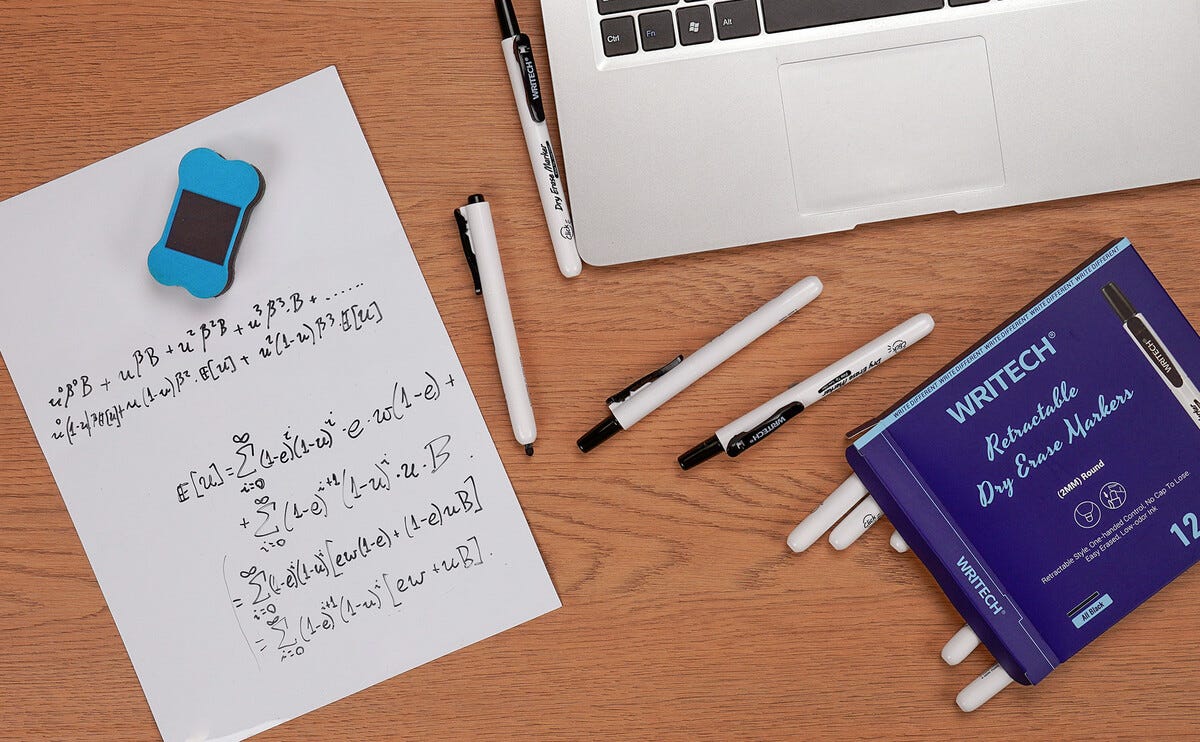 Ctrl Fn Alt
WRITECH®
Dry Erase Marker
Click
u⁰β⁰B + uβB + u²β²B + u³β³·B + ......
u⁰(1-u)β𝔼[u]+u(1-u)β²·𝔼[u] + u²(1-u)β³·𝔼[u]
𝔼[u] = ∑_{i=0}^{∞} (1-e)^i (1-u)^i · e · w(1-e) +
+ ∑_{i=0}^{∞} (1-e)^{i+1} (1-u)^i · u · B
= ∑_{i=0}^{∞} (1-e)^i (1-u)^i [ew(1-e) + (1-e)uB]
= ∑_{i=0}^{∞} (1-e)^{i+1} (1-u)^i [ew + uB].
Click
Dry Erase Marker
WRITECH
WRITE DIFFERENT. WRITE DIFFERENT. WRITE DIFFERENT. WRITE DIFFERENT.
WRITECH®
Retractable
Dry Erase Markers
(2MM) Round
Retractable Style, One-handed Control, No Cap To Lose
Easy Erased, Low-odor Ink
12
All Black
WRITECH®
WRITECH
Click